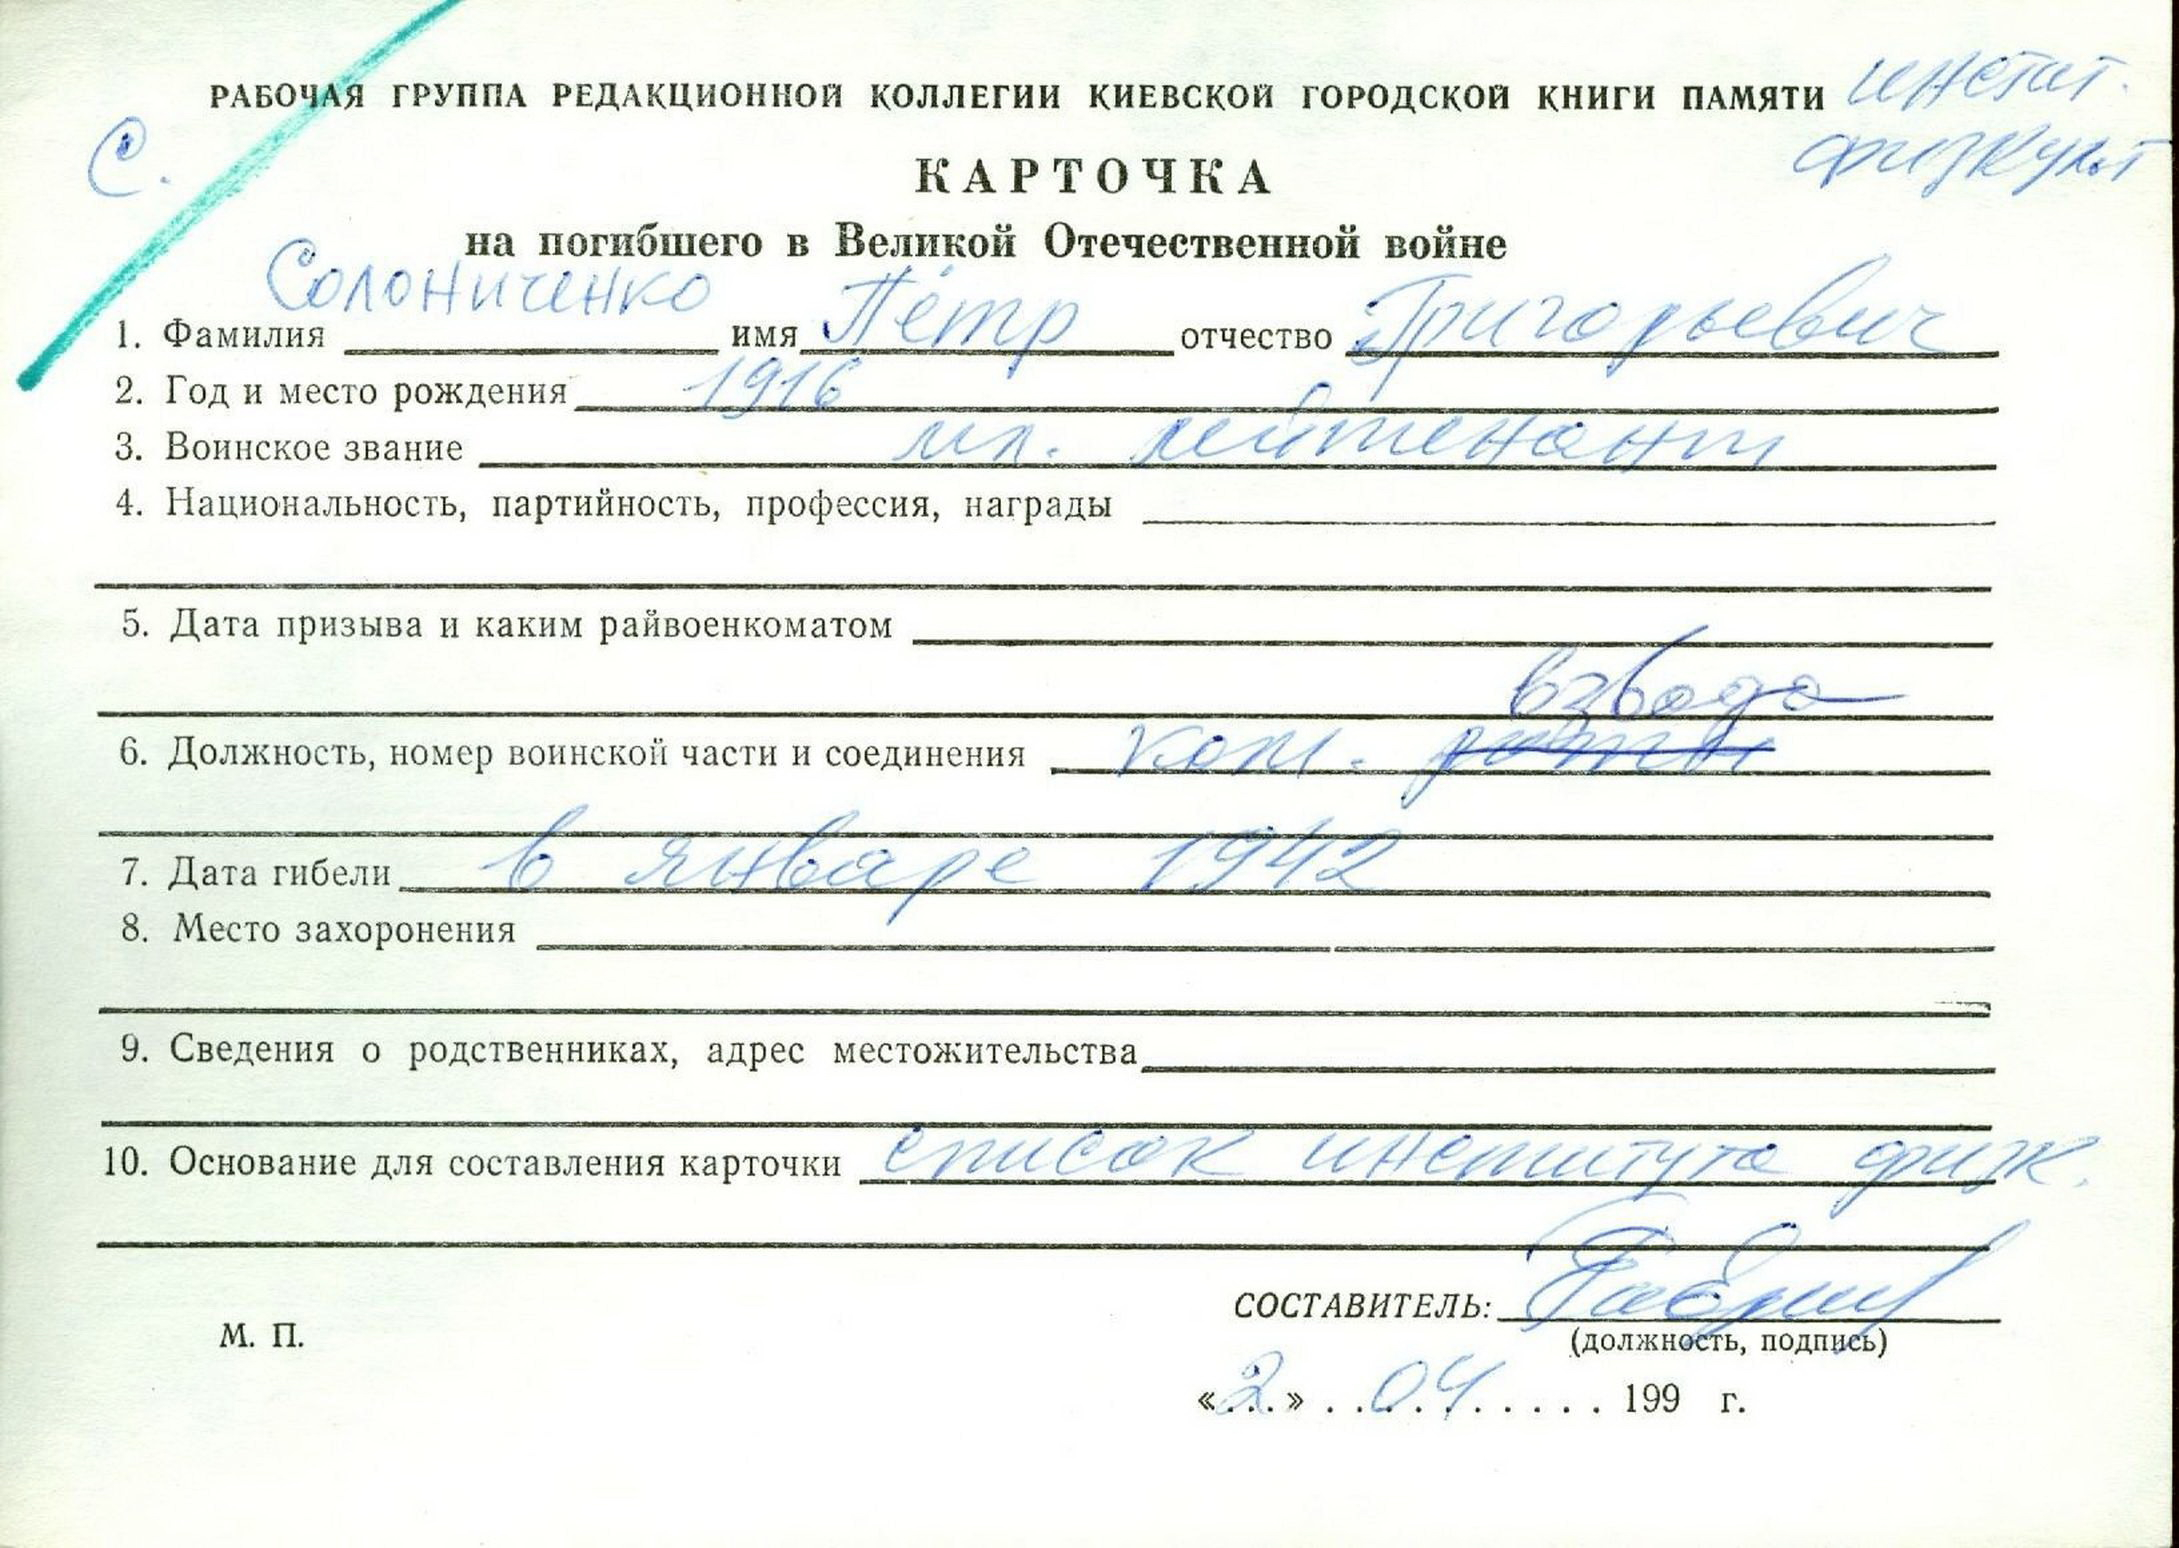 РАБОЧАЯ ГРУППА РЕДАКЦИОННОЙ КОЛЛЕГИИ КИЕВСКОЙ ГОРОДСКОЙ КНИГИ ПАМЯТИ инстит.
физкульт
С.
КАРТОЧКА
на погибшего в Великой Отечественной войне
1. Фамилия Солониченко имя Пётр отчество Григорьевич
2. Год и место рождения 1916
3. Воинское звание мл. лейтенант
4. Национальность, партийность, профессия, награды
5. Дата призыва и каким райвоенкоматом
взвода
6. Должность, номер воинской части и соединения ком. роты
7. Дата гибели в январе 1942
8. Место захоронения
9. Сведения о родственниках, адрес местожительства
10. Основание для составления карточки список института физк.
СОСТАВИТЕЛЬ:
М. П.
(должность, подпись)
«2» 04 199 г.